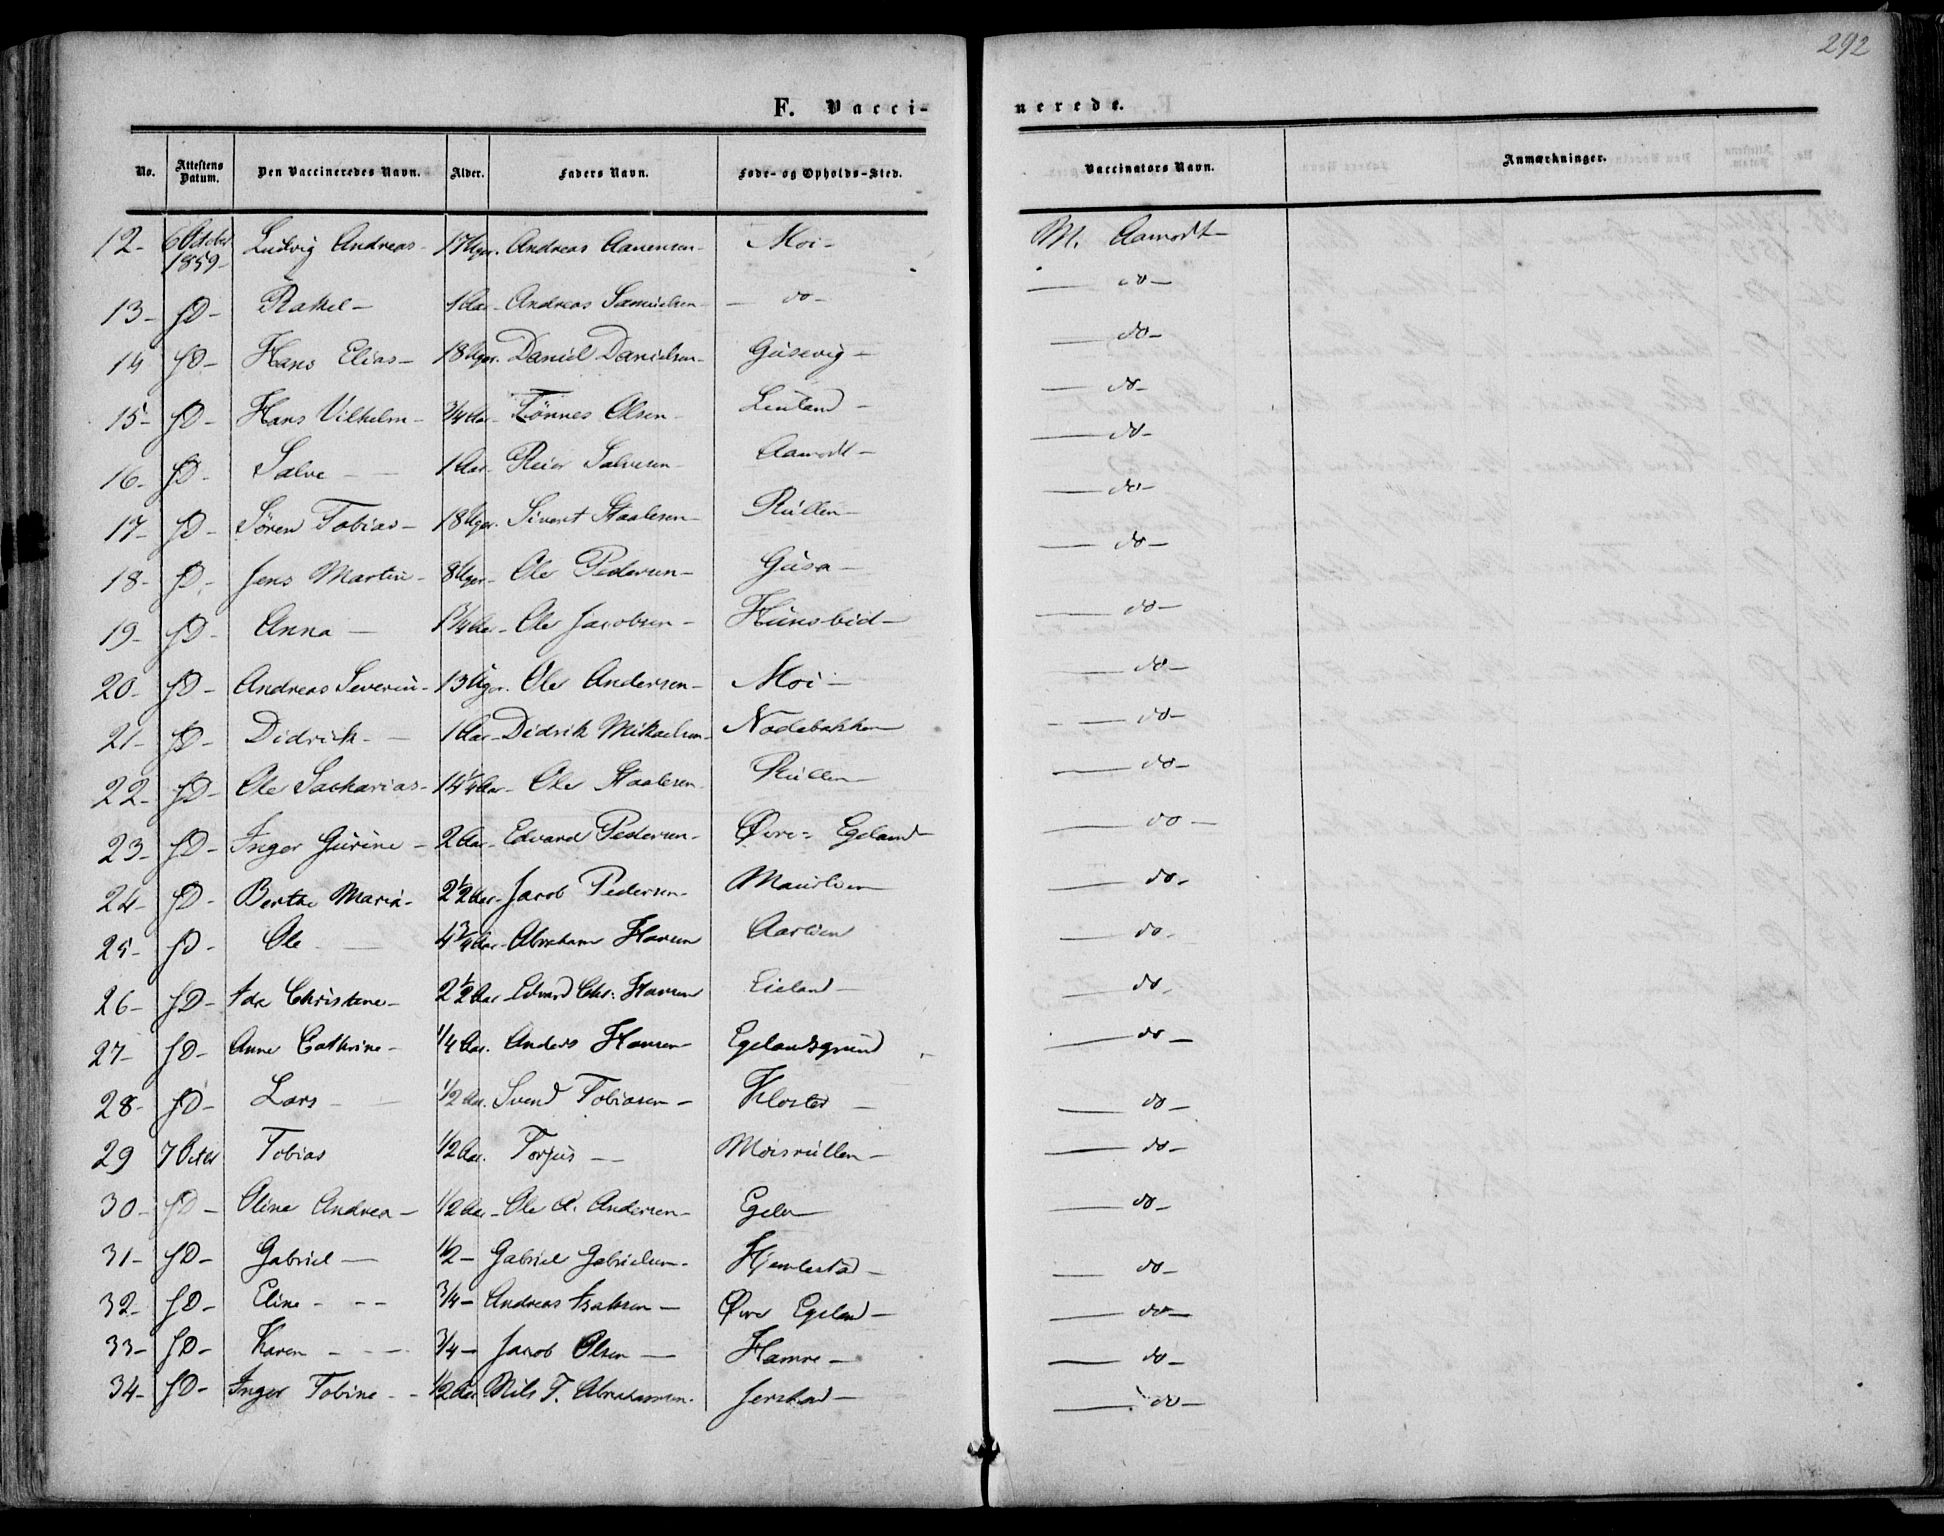 292
F. Vacci-
nerede.
No. Attestens Datum. Den Vaccineredes Navn. Alder. Faders Navn. Føde- og Opholds-Sted. Vaccinators Navn. Anmærkninger.
12- 6 October 1859- Ludvig Andreas- 17 Uger. Andreas Aanensen- Moi- M. Aamodt-
13- fD- Rakel- 1 Aar- Andreas Samuelsen- - do- - do-
14 fD- Hans Elias- 18 Uger. Daniel Danielsen- Gusevig- - do-
15- fD- Hans Vilhelm- 3/4 Aar- Tønnes Olsen- Leuland- - do-
16- fD- Salve - 1 Aar- Reier Salvesen- Aamodt- - do-
17- fD- Søren Tobias- 18 Uger. Sivert Staalesen- Rullen- - do-
18- fD- Jens Martin- 8 Uger- Ole Pedersen- Gusa- - do-
19- fD- Anna - 1 3/4 Aar- Ole Jacobsen- - do-
20- fD- Andreas Severin- 13 Uger. Ole Andersen- Moi- - do-
21- fD- Didrik- 1 Aar- Didrik Mikaelsen- Nodebakken - do-
22- fD- Ole Sacharias- 14 1/4 Aar- Ole Staalesen. Rullen- - do-
23- fD- Inger Gurine- 2 Aar- Edvard Pedersen- Øvre- Egeland- - do-
24- fD- Berthe Maria- 2 1/2 Aar- Jacob Pedersen- - do-
25- fD- Ole - 4 3/4 Aar- Abraham Hansen Aarlien - do-
26- fD- Ida Christine- 2 1/2 Aar- Edvard Chr. Hansen Eieland- - do-
27- fD- Anne Cathrine- 1/4 Aar. Anders Hansen- Egelandsgrund - do-
28- fD- Lars - 1/2 Aar. Svend Tobiasen- Kloster- - do-
29 7 Octbr Tobias 1/2 Aar. Torjus - Moisrullen- - do-
30- fD- Oline Andrea- 1/2 Aar- Ole A. Andersen- Egelan - do-
31- fD- Gabriel- 1/2- Gabriel Gabrielsen- Hjemlestad- - do-
32- fD- Eline - 3/4- Andreas Isaksen- Øvre Egeland- - do-
33- fD- Karen - 3/4- Jacob Olsen- Hamre- - do-
34- fD- Inger Tobine - 1/2 Aar Nils T. Abrahamsen. Jerstad- - do-